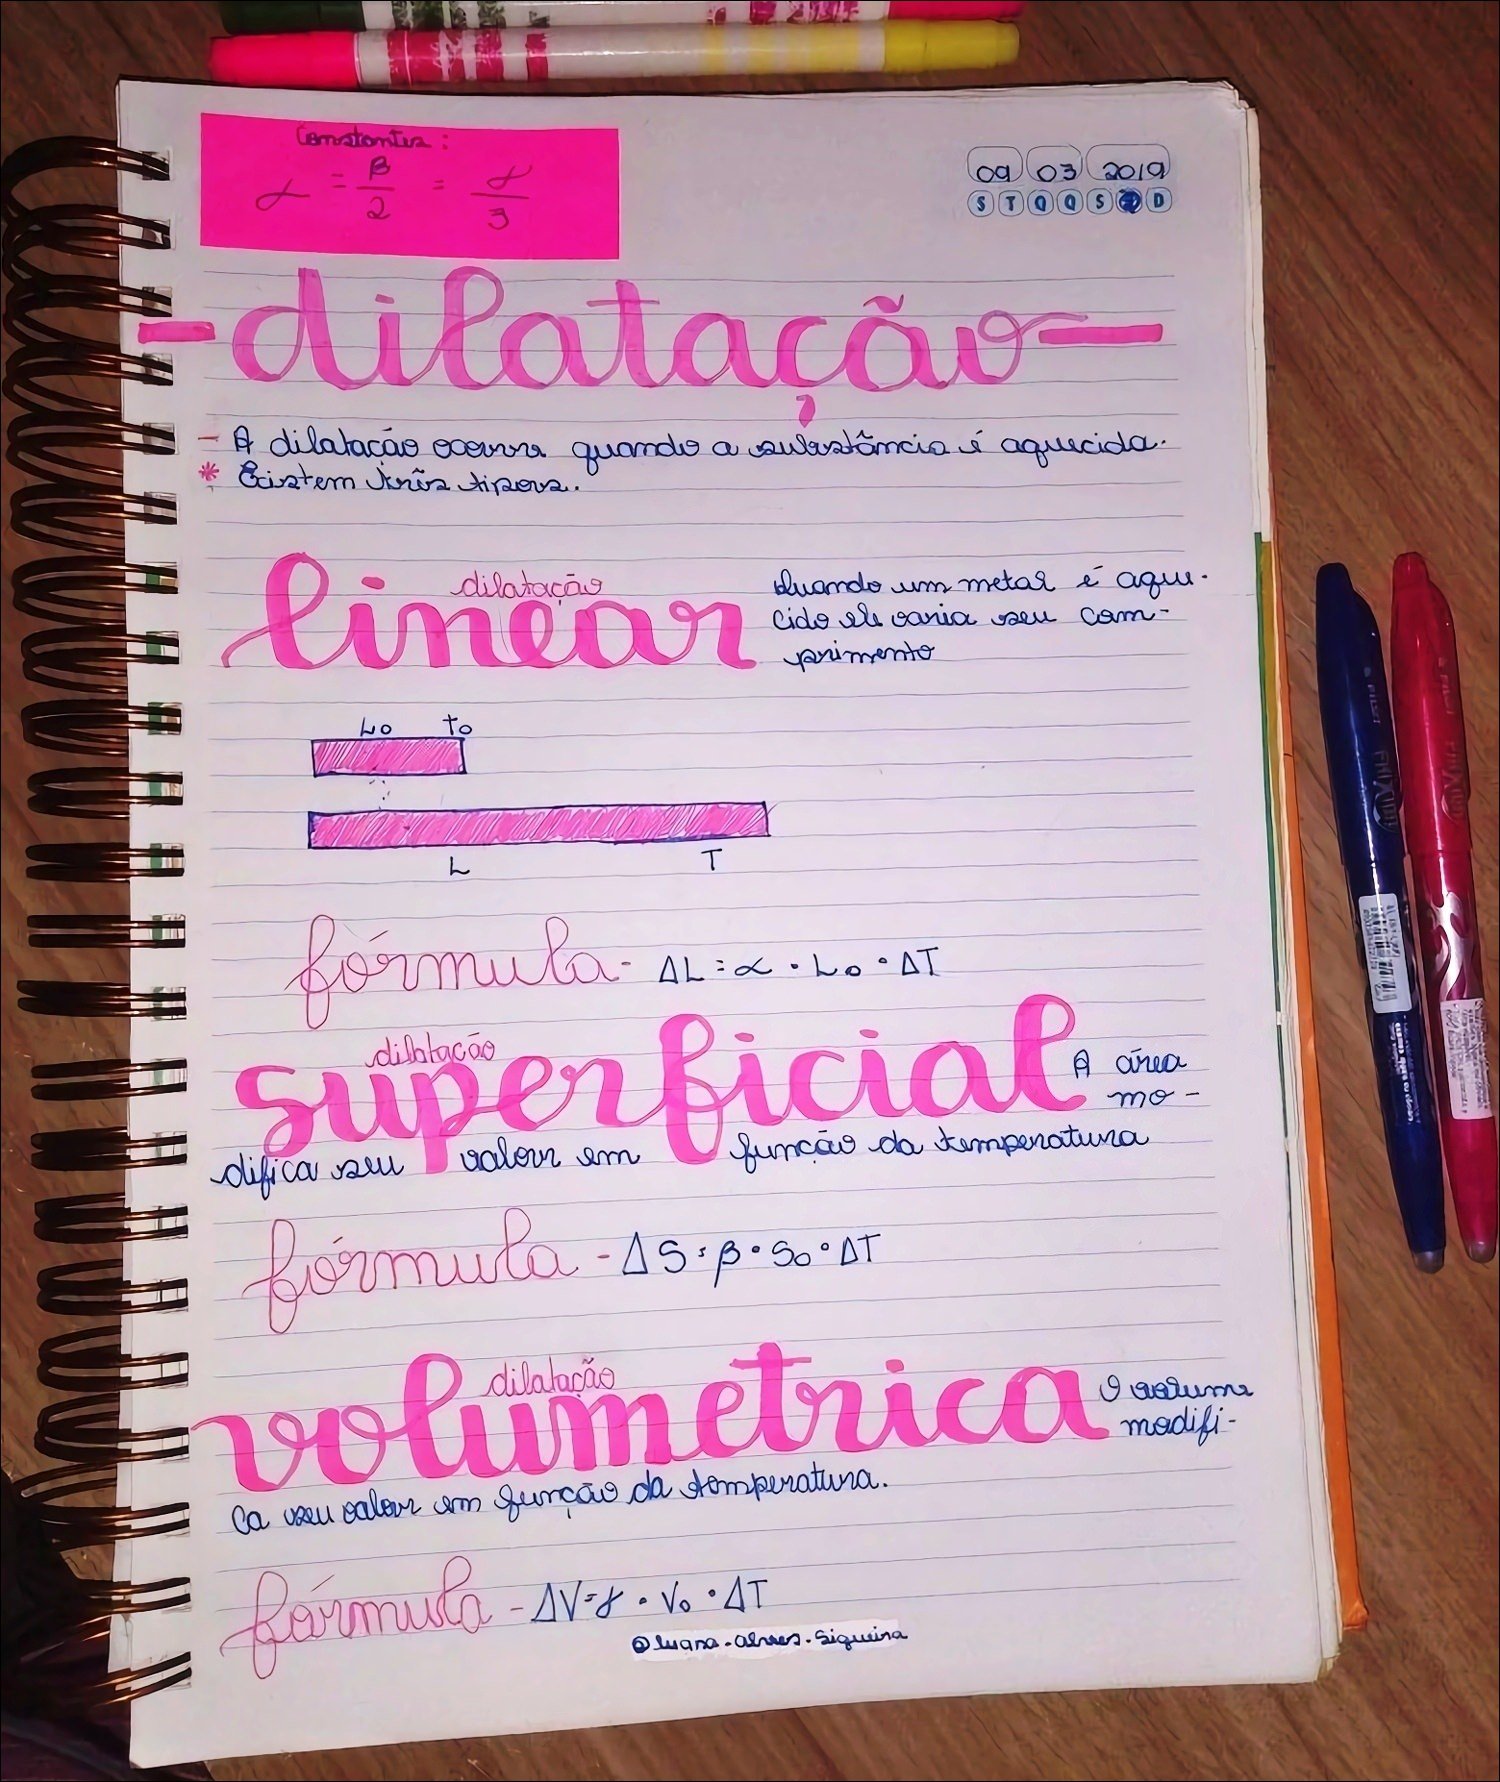 Constantes:
α = β/2 = γ/3
09 03 2019
S T Q Q S S D
-dilatação-
- A dilatação ocorre quando a substância é aquecida.
* Existem três tipos.
dilatação
linear
Quando um metal é aque-
cido ele varia seu com-
primento
Lo To
L T
fórmula - ΔL = α · Lo · ΔT
dilatação
superficial
A área
mo-
difica seu valor em função da temperatura
fórmula - ΔS = β · So · ΔT
dilatação
volumetrica
O volume
modifi-
ca seu valor em função da temperatura.
fórmula - ΔV = γ · Vo · ΔT
@luana.alves.siqueira
PILOT
FRIXION
PILOT
FRIXION